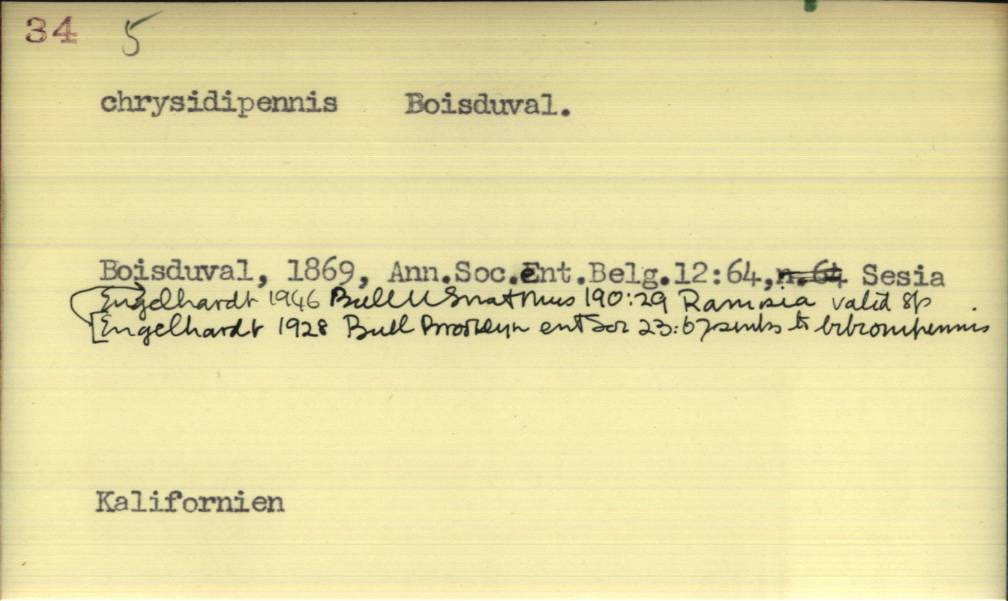 34 5
chrysidipennis Boisduval.
Boisduval, 1869, Ann.Soc.Ent.Belg.12:64, n.64 Sesia
Engelhardt 1946 Bull U S nat Mus 190:29 Ramosia valid sp
Engelhardt 1928 Bull Brooklyn ent Soc 23:67 to bibionipennis
Kalifornien